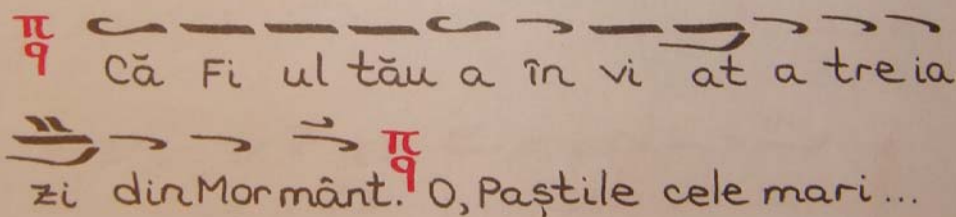 π
q Că Fi ul tău a în vi at a tre ia
zi din Mor mânt. π
q O, Paștile cele mari...